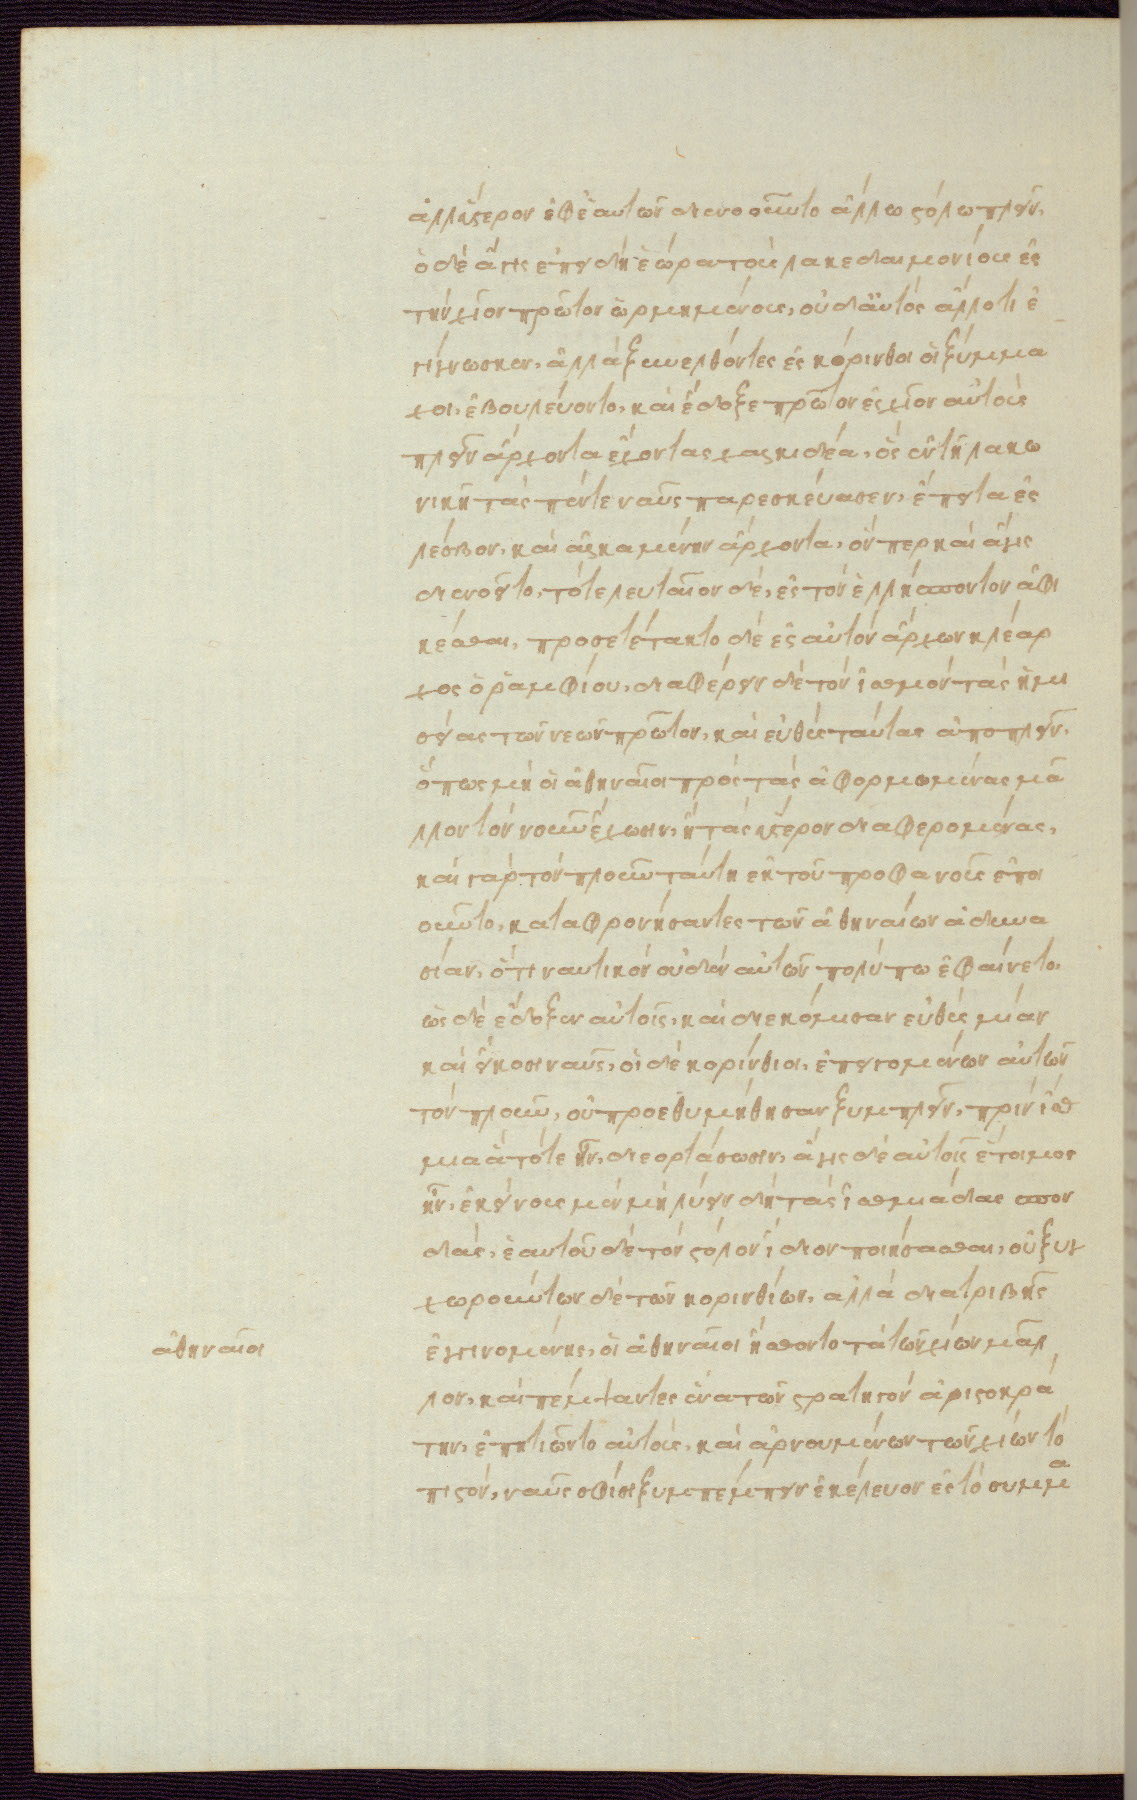 ἀλλ' ὕστερον ἐφ' ἑαυτῶν διενοοῦντο ἄλλω στόλω πλεῖν.
ὁ δὲ ἄγις ἐπειδὴ ἑώρα τοὺς λακεδαιμονίους ἐς
τὴν χίον πρῶτον ὡρμημένους, οὐδ' αὐτὸς ἄλλο τι ἐ
γίγνωσκεν, ἀλλὰ ξυνελθόντες ἐς κόρινθοι οἱ ξύμμα
χοι, ἐβουλεύοντο, καὶ ἔδοξε πρῶτον ἐς χίον αὐτοὺς
πλεῖν ἄρχοντα ἔχοντας χασκιδέα, ὃς ἐν τῇ λακω
νικῇ τὰς πέντε ναῦς παρεσκεύασεν, ἔπειτα ἐς
λέσβον, καὶ ἀσκαμένην ἄρχοντα, ὅν περ καὶ ἄγις
διενοεῖτο, τὸ τελευταῖον δὲ, ἐς τὸν ἑλλήσποντον ἀφι
κέσθαι, προσετέτακτο δὲ ἐς αὐτὸν ἄρχων κλέαρ
χος ὁ ῥαμφίου, διαφέρειν δὲ τὸν ἰσθμὸν τὰς ἡμι
σείας τῶν νεῶν πρῶτον, καὶ εὐθὺς ταύτας ἀποπλεῖν,
ὅπως μὴ οἱ ἀθηναῖοι πρὸς τὰς ἀφορμωμένας μᾶ
λλον τὸν νοῦν ἔχωσιν, ἢ τὰς ὕστερον διαφερομένας,
καὶ γὰρ τὸν πλοῦν ταύτη ἐκ τοῦ προφανοῦς ἐποι
οῦντο, καταφρονήσαντες τῶν ἀθηναίων ἀδυνα
σίαν, ὅτι ναυτικὸν οὐδὲν αὐτῶν πολύ πω ἐφαίνετο.
ὡς δὲ ἔδοξεν αὐτοῖς, καὶ διεκόμισαν εὐθὺς μίαν
καὶ εἴκοσι ναῦς, οἱ δὲ κορίνθιοι, ἐπειγομένων αὐτῶν
τὸν πλοῦν, οὐ προεθυμήθησαν ξυμπλεῖν, πρὶν ἴσθ
μια ἃ τότε ἦν, διεορτάσωσιν, ἄγις δὲ αὐτοῖς ἕτοιμος
ἦν, ἐκείνους μὲν μὴ λύειν δὴ τὰς ἰσθμιάδας σπον
δὰς, ἑαυτοῦ δὲ τὸν στόλον ἴδιον ποιήσασθαι, οὐ ξυγ
χωρούντων δὲ τῶν κορινθίων, ἀλλὰ διατριβῆς
ἐγγινομένης, οἱ ἀθηναῖοι ἤσθοντο τὰ τῶν χίων μᾶλ
λον, καὶ πέμψαντες ἕνα τῶν στρατηγόν ἀριστοκρά
την, ἐπητιῶντο αὐτοὺς, καὶ ἀρνουμένων τῶν χίων τὸ
πιστόν, ναῦς σφίσι ξυμπέμπειν ἐκέλευον ἐς τὸ συμμα
ἀθηναῖοι